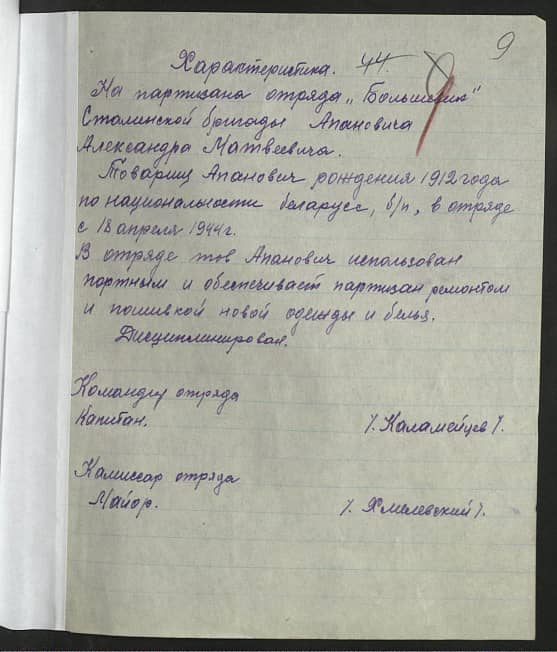 9
Характеристика. 44.
На партизана отряда „Большевик"
Сталинской бригады Апановича
Александра Матвеевича.
Товарищ Апанович рождения 1912 года
по национальности беларусс, б/п, в отряде
с 18 апреля 1944 г.
В отряде тов Апанович использован
портным и обеспечивает партизан ремонтом
и пошивкой новой одежды и белья.
Дисциплинирован.
Командир отряда
Капитан. /. Каламейцев /.
Комиссар отряда
Майор. /. Хмелевский /.